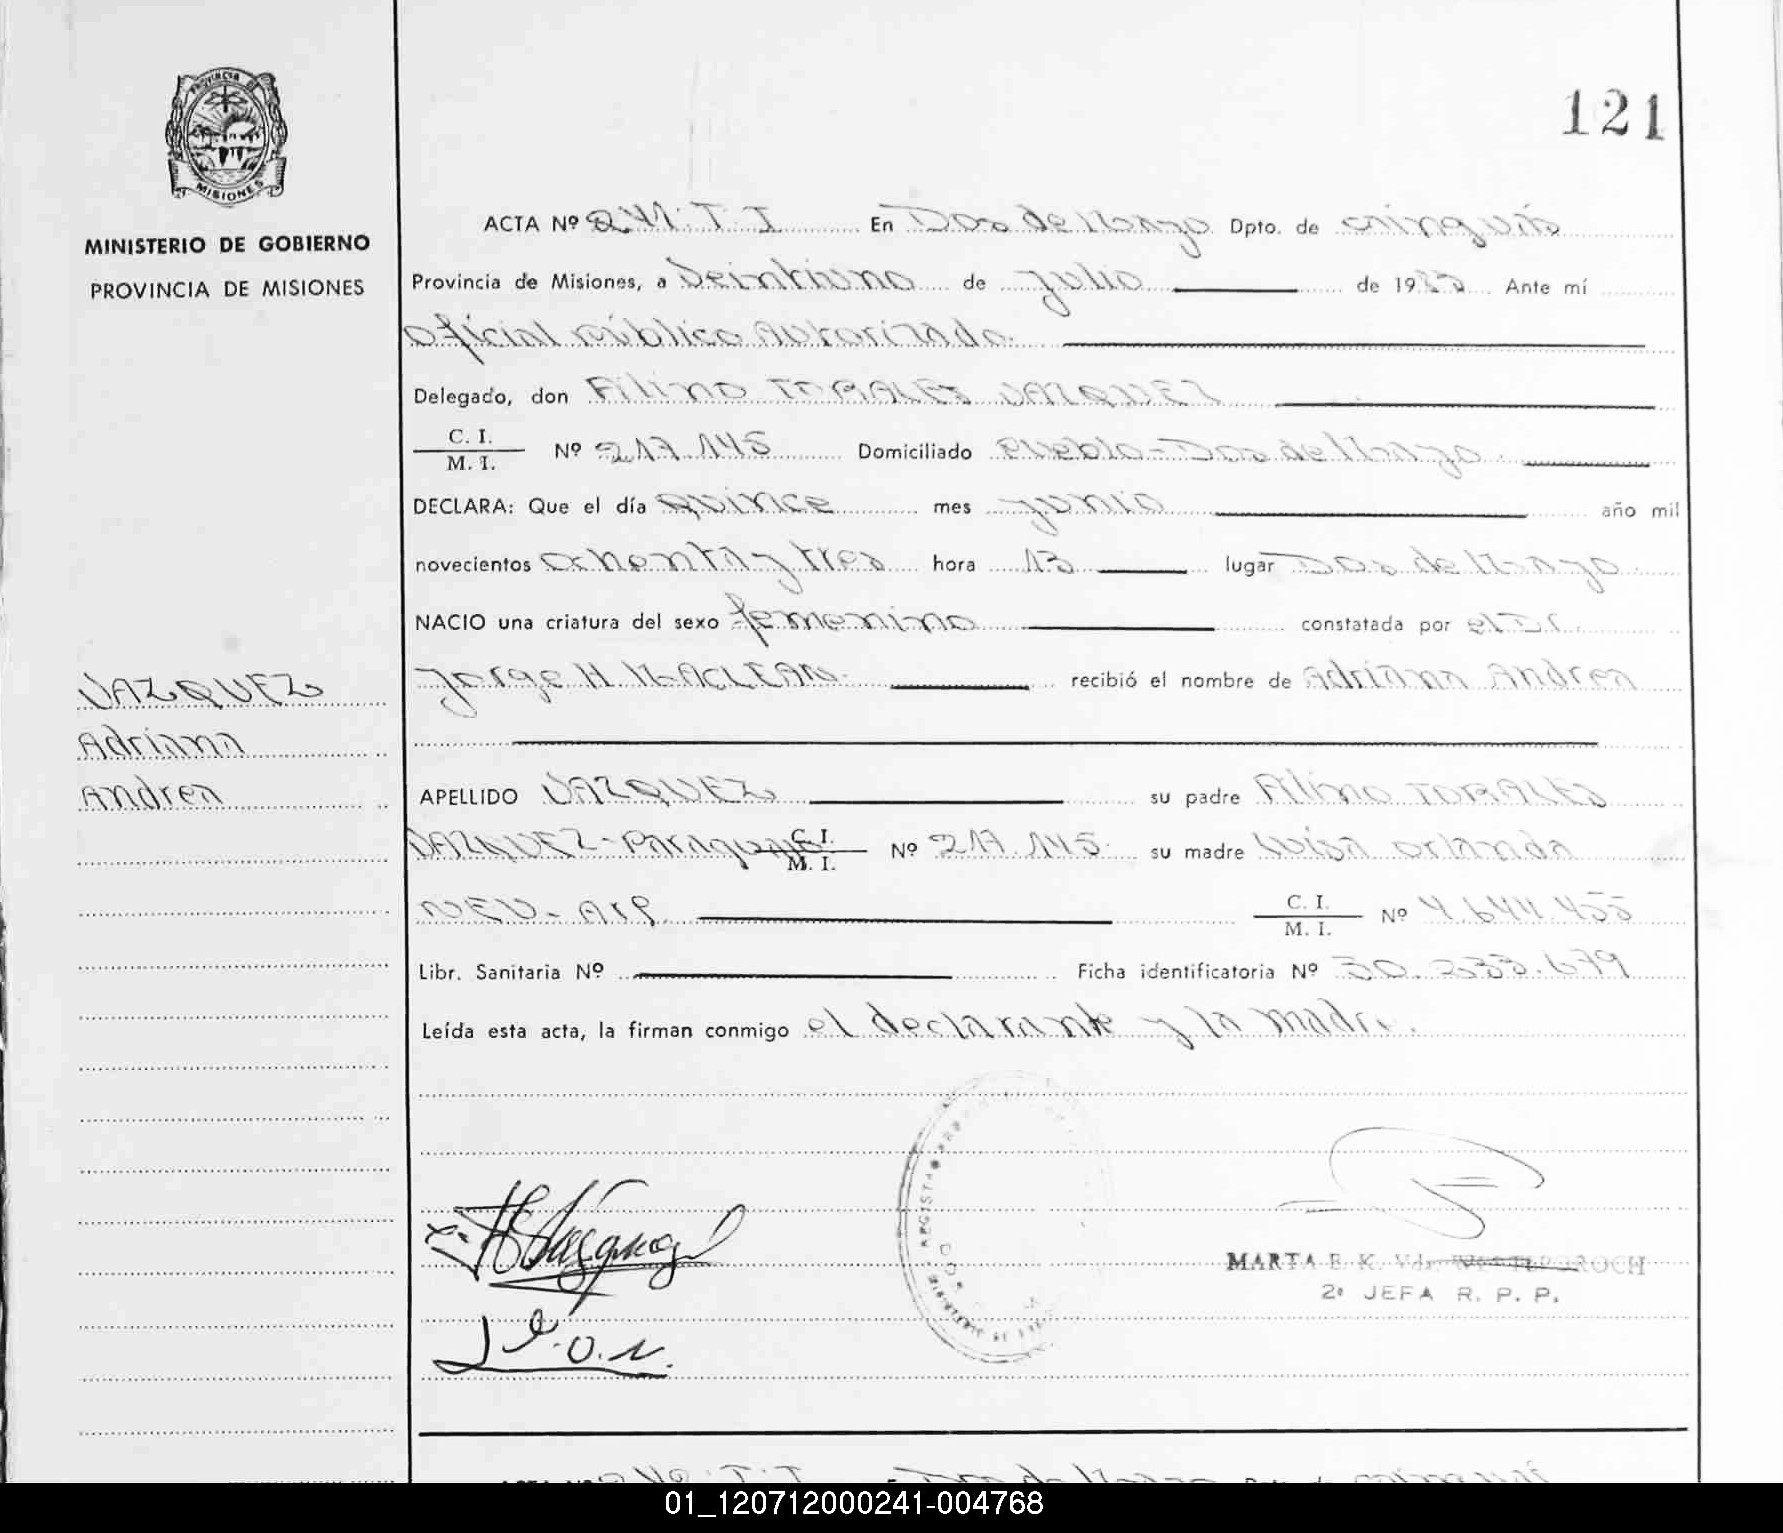 121
PROVINCIA DE
MISIONES
MINISTERIO DE GOBIERNO
PROVINCIA DE MISIONES
ACTA Nº 241. T. I En Dos de Mayo Dpto. de
Provincia de Misiones, a Veintiuno de julio de 1983 Ante mí
Oficial Público Autorizado.
Delegado, don Filino TORALES VAZQUEZ
C. I.
M. I. Nº 217.145 Domiciliado Pueblo-Dos de Mayo.
DECLARA: Que el día quince mes junio año mil
novecientos ochenta y tres hora 13 lugar Dos de Mayo.
NACIO una criatura del sexo femenino constatada por el Dr.
Jorge H. MACLEAN. recibió el nombre de Adriana Andrea
VAZQUEZ
Adriana
Andrea
APELLIDO VAZQUEZ su padre Filino TORALES
VAZQUEZ-Paraguayo C. I.
M. I. Nº 217.145. su madre Luisa Orlanda
NEU- Arg. C. I.
M. I. Nº 4.644.455
Libr. Sanitaria Nº Ficha identificatoria Nº 30.233.679
Leída esta acta, la firman conmigo el declarante y la madre.
REGISTRO
L. O. N.
MARTA E. K. Vda.
2º JEFA R. P. P.
01_120712000241-004768